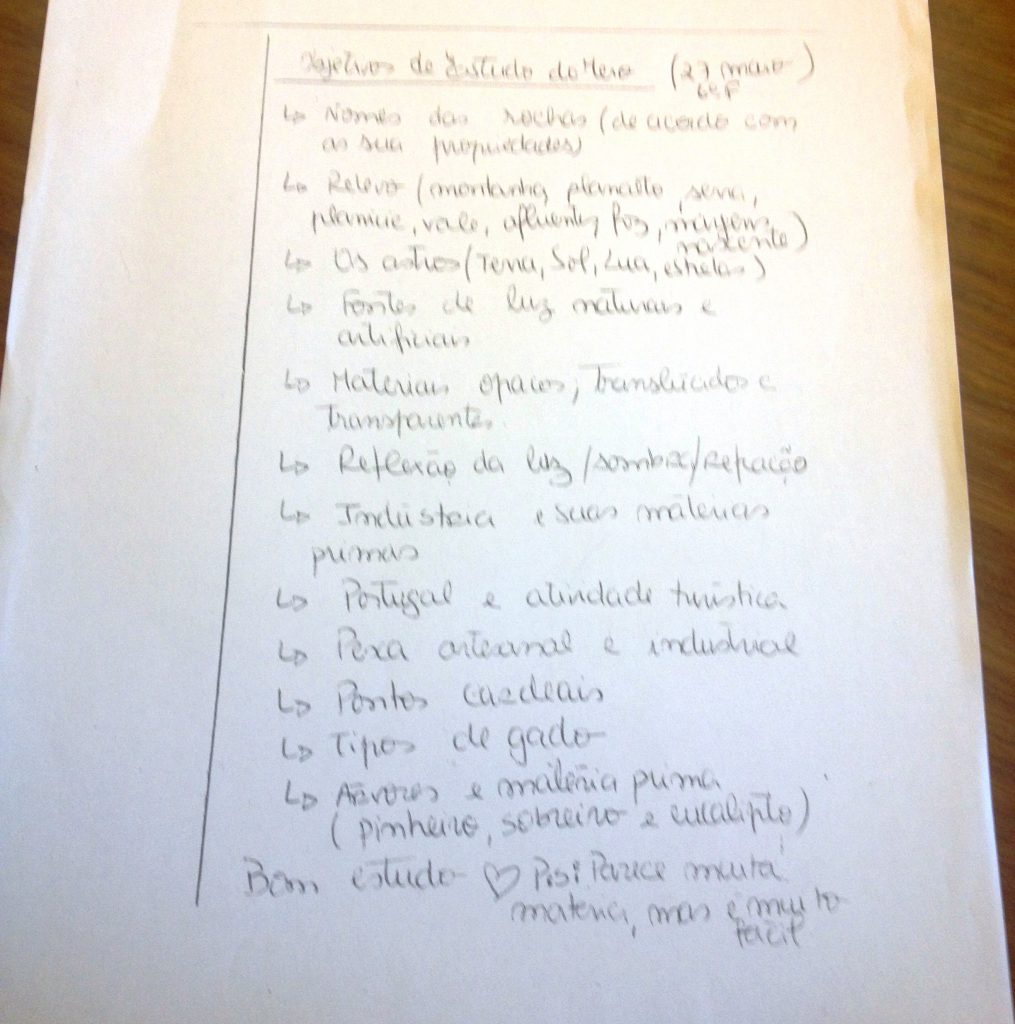 Objetivos de Estudo do Meio (27 maio)
6ª F
↳ Nomes das rochas (de acordo com
as sua propriedades)
↳ Relevo (montanha, planalto, serra,
planície, vale, afluente, foz, margem,
nascente)
↳ Os astros (Terra, Sol, Lua, estrelas)
↳ Fontes de luz naturais e
artificiais
↳ Materiais opacos, translúcidos e
transparentes.
↳ Reflexão da luz/sombra/refração
↳ Indústria e suas matérias
primas
↳ Portugal e atividade turística
↳ Pesca artesanal e industrial
↳ Pontos cardeais
↳ Tipos de gado
↳ Árvores e matéria prima
(pinheiro, sobreiro e eucalipto)
Bom estudo ♡ Ps: Parece muita
matéria, mas é muito
fácil